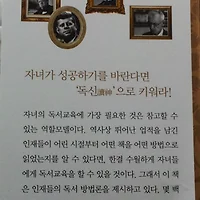 자녀가 성공하기를 바란다면
‘독신讀神’으로 키워라!
자녀의 독서교육에 가장 필요한 것은 참고할 수
있는 역할모델이다. 역사상 뛰어난 업적을 남긴
인재들이 어린 시절부터 어떤 책을 어떤 방법으로
읽었는지를 알 수 있다면, 한결 수월하게 자녀들
에게 독서교육을 할 수 있을 것이다. 그래서 이 책
은 인재들의 독서 방법론을 제시하고 있다. 몇 백